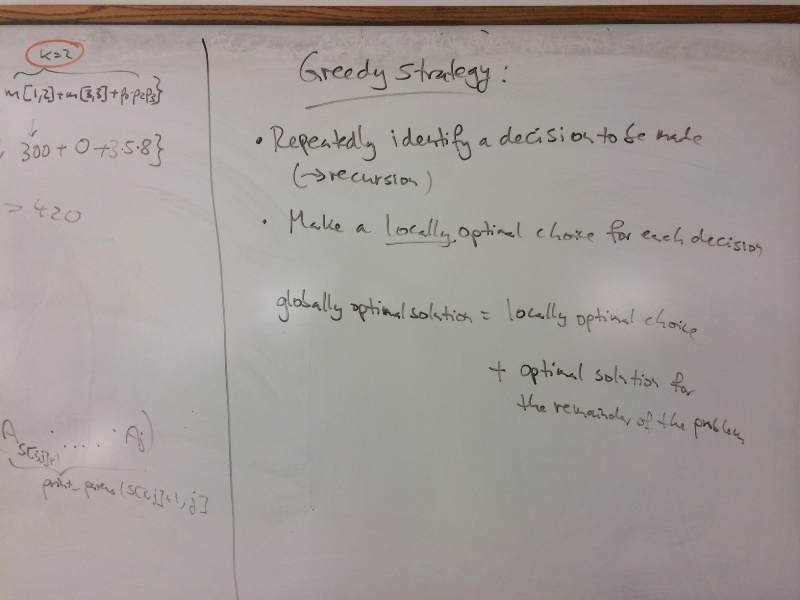 k=2
m[1,2]+m[3,3]+p₀·p₂p₃}
, 300 + 0 + 3·5·8}
= 420
A_{S[i,j]+1} ..... A_j)
print_parens(S[i,j]+1, j]
Greedy Strategy:
• Repeatedly identify a decision to be made
(→recursion)
• Make a locally optimal choice for each decision
globally optimal solution = locally optimal choice
+ optimal solution for
the remainder of the problem